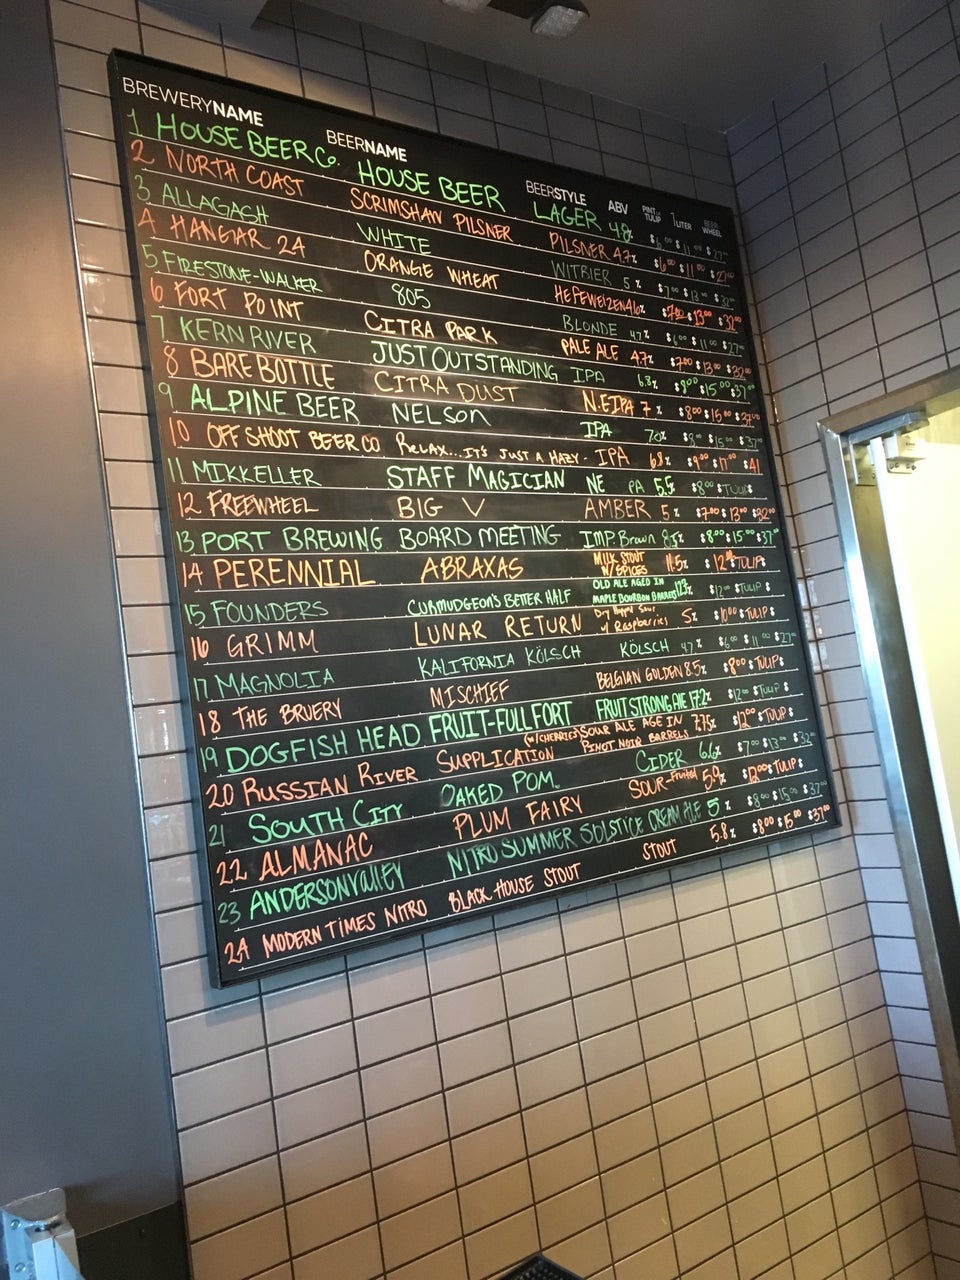 BREWERYNAME BEERNAME BEERSTYLE ABV PINT TULIP 1LITER BEER WHEEL
1 HOUSE BEER Co. HOUSE BEER LAGER 4.8% $6.00 $11.00 $27.00
2 NORTH COAST SCRIMSHAW PILSNER PILSNER 4.7% $6.00 $11.00 $27.00
3 ALLAGASH WHITE WITBIER 5% $7.00 $13.00 $32.00
4 HANGAR 24 ORANGE WHEAT HEFEWEIZEN 4.6% $7.00 $13.00 $32.00
5 FIRESTONE-WALKER 805 BLONDE 4.7% $6.00 $11.00 $27.00
6 FORT POINT CITRA PARK PALE ALE 4.7% $7.00 $13.00 $32.00
7 KERN RIVER JUST OUTSTANDING IPA 6.8% $8.00 $15.00 $37.00
8 BARE BOTTLE CITRA DUST N.E IPA 7% $8.00 $15.00 $37.00
9 ALPINE BEER NELSON IPA 7% $8.00 $15.00 $37.00
10 OFFSHOOT BEER CO Relax...IT'S JUST A HAZY - IPA 6.8% $9.00 $17.00 $41
11 MIKKELLER STAFF MAGICIAN NE PA 5.5 $8.00 $TULIP $
12 FREEWHEEL BIG V AMBER 5% $7.00 $13.00 $32.00
13 PORT BREWING BOARD MEETING IMP. Brown 8.5% $8.00 $15.00 $37.00
14 PERENNIAL ABRAXAS MILK STOUT W/ SPICES 11.5% $12.00 $TULIP $
15 FOUNDERS CURMUDGEON'S BETTER HALF OLD ALE AGED IN MAPLE BOURBON BARRELS 12.7% $12.00 $TULIP $
16 GRIMM LUNAR RETURN Dry Hopped Sour w/ Raspberries 5% $10.00 $TULIP $
17 MAGNOLIA KALIFORNIA KÖLSCH KÖLSCH 4.7% $6.00 $11.00 $27.00
18 THE BRUERY MISCHIEF BELGIAN GOLDEN 8.5% $8.00 $TULIP $
19 DOGFISH HEAD FRUIT-FULL FORT FRUIT STRONG ALE 17.2% $12.00 $TULIP $
20 RUSSIAN RIVER SUPPLICATION (W/CHERRIES) SOUR ALE AGE IN PINOT NOIR BARRELS 7.75% $12.00 $TULIP $
21 SOUTH CITY OAKED POM CIDER 6.6% $7.00 $13.00 $32.00
22 ALMANAC PLUM FAIRY SOUR-Fruited 5.9% $12.00 $TULIP $
23 ANDERSON VALLEY NITRO SUMMER SOLSTICE CREAM ALE 5% $8.00 $15.00 $37.00
24 MODERN TIMES NITRO BLACK HOUSE STOUT STOUT 5.8% $8.00 $15.00 $37.00